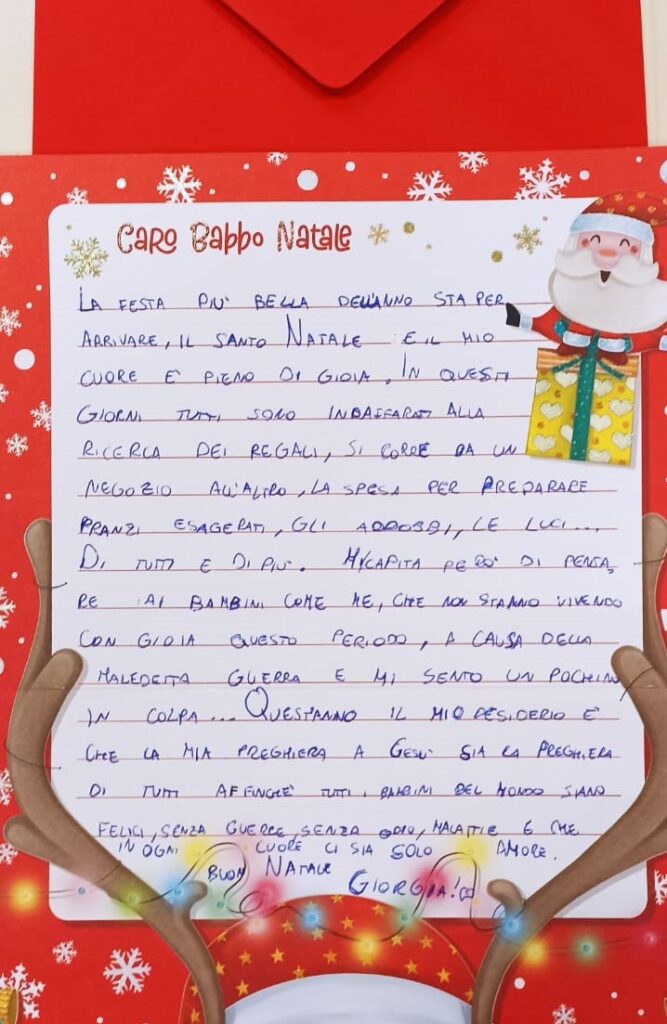 Caro Babbo Natale
LA FESTA PIU' BELLA DELL'ANNO STA PER
ARRIVARE, IL SANTO NATALE E IL MIO
CUORE E' PIENO DI GIOIA. IN QUESTI
GIORNI TUTTI SONO INDAFFARATI ALLA
RICERCA DEI REGALI, SI CORRE DA UN
NEGOZIO ALL'ALTRO, LA SPESA PER PREPARARE
PRANZI ESAGERATI, GLI ADDOBBI, LE LUCI...
DI TUTTI E DI PIU'. MI CAPITA PERO' DI PENSA,
RE AI BAMBINI COME ME, CHE NON STANNO VIVENDO
CON GIOIA QUESTO PERIODO, A CAUSA DELLA
MALEDETTA GUERRA E MI SENTO UN POCHINO
IN COLPA... QUEST'ANNO IL MIO DESIDERIO E'
CHE LA MIA PREGHIERA A GESU' SIA LA PREGHIERA
DI TUTTI AFFINCHE' TUTTI I BAMBINI DEL MONDO SIANO
FELICI, SENZA GUERRE, SENZA ODIO, MALATTIE E CHE
IN OGNI CUORE CI SIA SOLO AMORE.
BUON NATALE
GIORGIA!